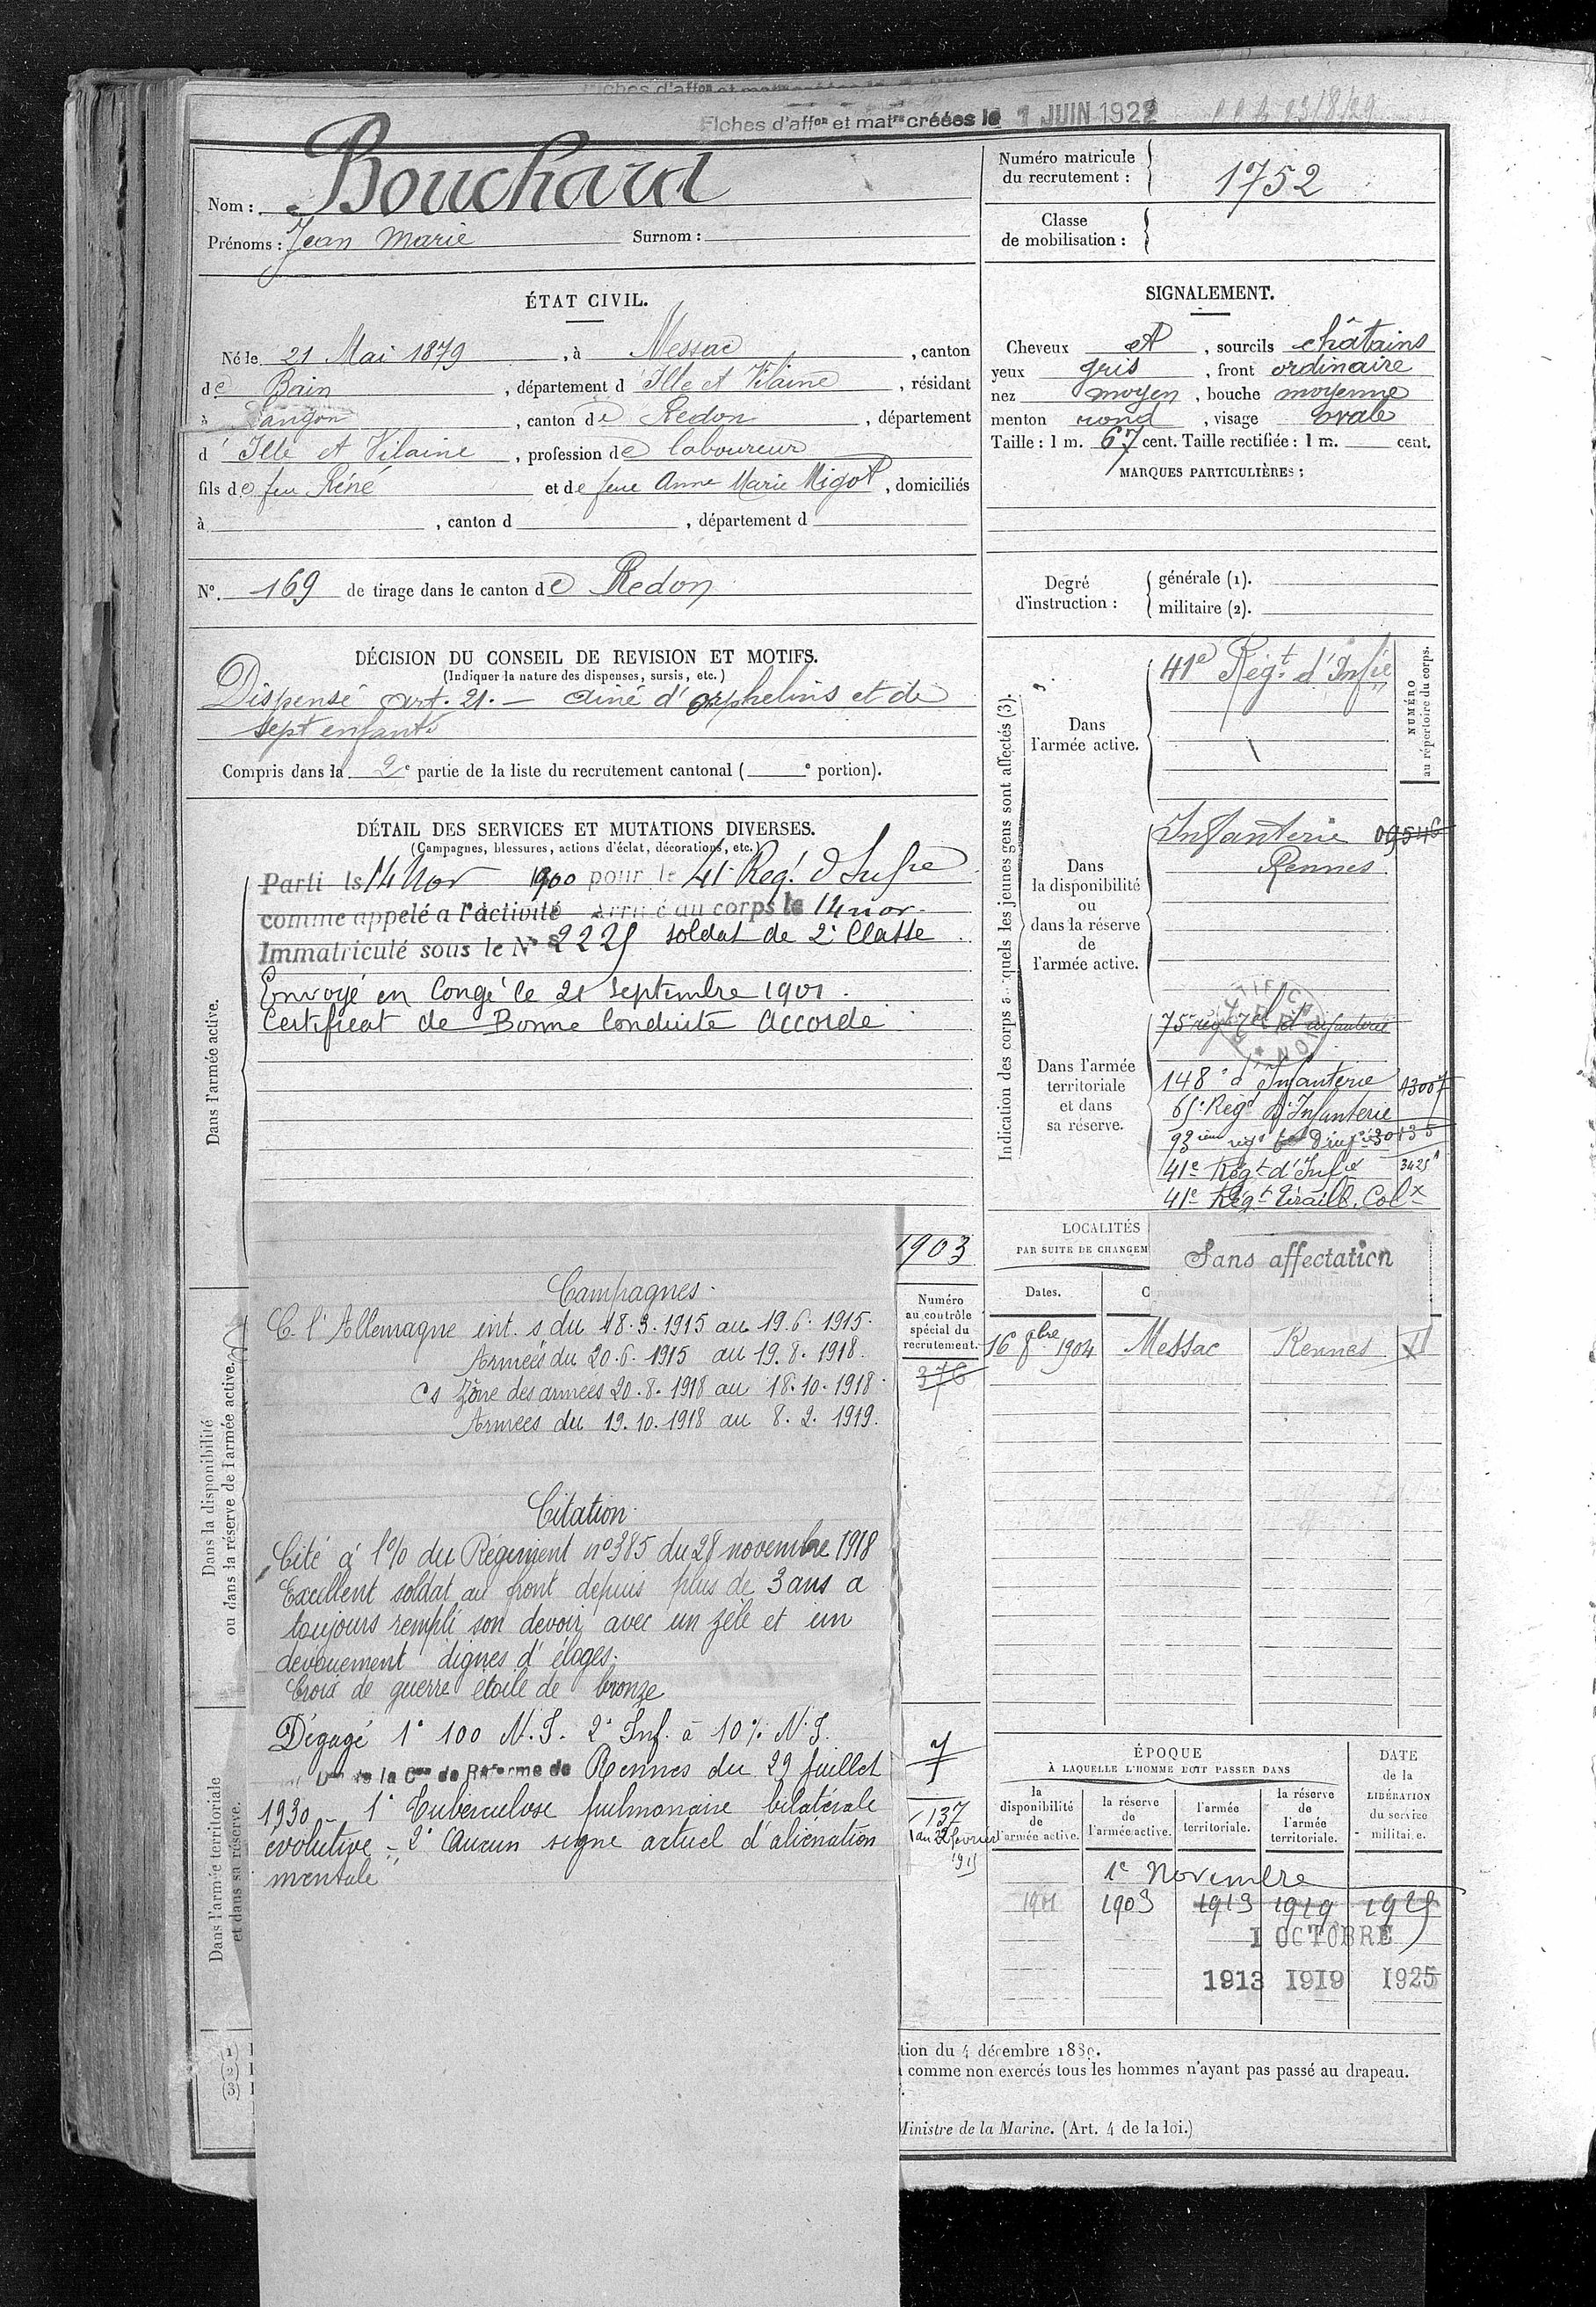 Fiches d'affon et matres créées le 1 JUIN 1922
Nom : Bouchard
Prénoms : Jean Marie Surnom :
Numéro matricule du recrutement : 1752
Classe de mobilisation :
ÉTAT CIVIL.
Né le 21 Mai 1879, à Messac, canton
de Bain, département d'Ille et Vilaine, résidant
à Langon, canton de Redon, département
d'Ille et Vilaine, profession de laboureur
fils de feu Réné et de feue Anne Marie Migot, domiciliés
à , canton d , département d
N° 169 de tirage dans le canton de Redon
SIGNALEMENT.
Cheveux et , sourcils châtains
yeux gris , front ordinaire
nez moyen , bouche moyenne
menton rond , visage ovale
Taille : 1 m. 67 cent. Taille rectifiée : 1 m. cent.
MARQUES PARTICULIÈRES :
Degré d'instruction : générale (1).
militaire (2).
DÉCISION DU CONSEIL DE REVISION ET MOTIFS.
(Indiquer la nature des dispenses, sursis, etc.)
Dispensé art. 21. — ainé d'orphelins et de
sept enfants
Compris dans la 2e partie de la liste du recrutement cantonal ( e portion).
DÉTAIL DES SERVICES ET MUTATIONS DIVERSES.
(Campagnes, blessures, actions d'éclat, décorations, etc.)
Dans l'armée active.
Parti le 14 Nov 1900 pour le 41 Reg.t d'Infie
comme appelé a l'activité Arrivé au corps le 14 nov.
Immatriculé sous le N° 2225 soldat de 2e Classe
Envoyé en Congé le 21 septembre 1901.
Certificat de Bonne Conduite Accordé
Campagnes.
C. l'Allemagne int. s du 18.3.1915 au 19.6.1915.
Armées du 20.6.1915 au 19.8.1918.
Cs Zône des armées 20.8.1918 au 18.10.1918
Armées du 19.10.1918 au 8.2.1919.
Citation.
Cité à l'o/o du Régiment n° 385 du 28 novembre 1918
Excellent soldat au front depuis plus de 3 ans a
toujours rempli son devoir avec un zèle et un
devouement dignes d'éloges.
Croix de guerre étoile de bronze
Dégagé 1° 100 N.I. 2° Inf. à 10% N.I.
Don de la Con de Réforme de Rennes du 29 juillet
1930 - 1° Tuberculose pulmonaire bilatérale
évolutive - 2° Aucun signe actuel d'aliénation
mentale
Dans la disponibilité
ou dans la réserve de l'armée active.
Dans l'armée territoriale
et dans sa réserve.
1903
Numéro
au contrôle
spécial du
recrutement.
376
7
137
au 22 février
1915
Indication des corps auxquels les jeunes gens sont affectés (3).
NUMÉRO
au répertoire du corps.
Dans
l'armée active.
41e Régt. d'Infie
Dans
la disponibilité
ou
dans la réserve
de
l'armée active.
Infanterie 09546
Rennes
Dans l'armée
territoriale
et dans
sa réserve.
75e régt tal d'infanterie
148e d'Infanterie 13007
65e Regt d'Infanterie
93ieme regt d'infie 30135
41e Régt d'Infie 3425
41e Régt Tiraill. Colx
LOCALITÉS
PAR SUITE DE CHANGEM
Sans affectation
Dates.
16 9bre 1904 Messac Rennes
ÉPOQUE
À LAQUELLE L'HOMME DOIT PASSER DANS
la disponibilité de l'armée active.
la réserve de l'armée active.
l'armée territoriale.
la réserve de l'armée territoriale.
DATE de la LIBÉRATION du service militaire.
1e Novembre
1901 1903 1913 1919 1925
1 OCTOBRE
1913 1919 1925
(1)
(2)
(3)
tion du 4 décembre 1889.
comme non exercés tous les hommes n'ayant pas passé au drapeau.
Ministre de la Marine. (Art. 4 de la loi.)